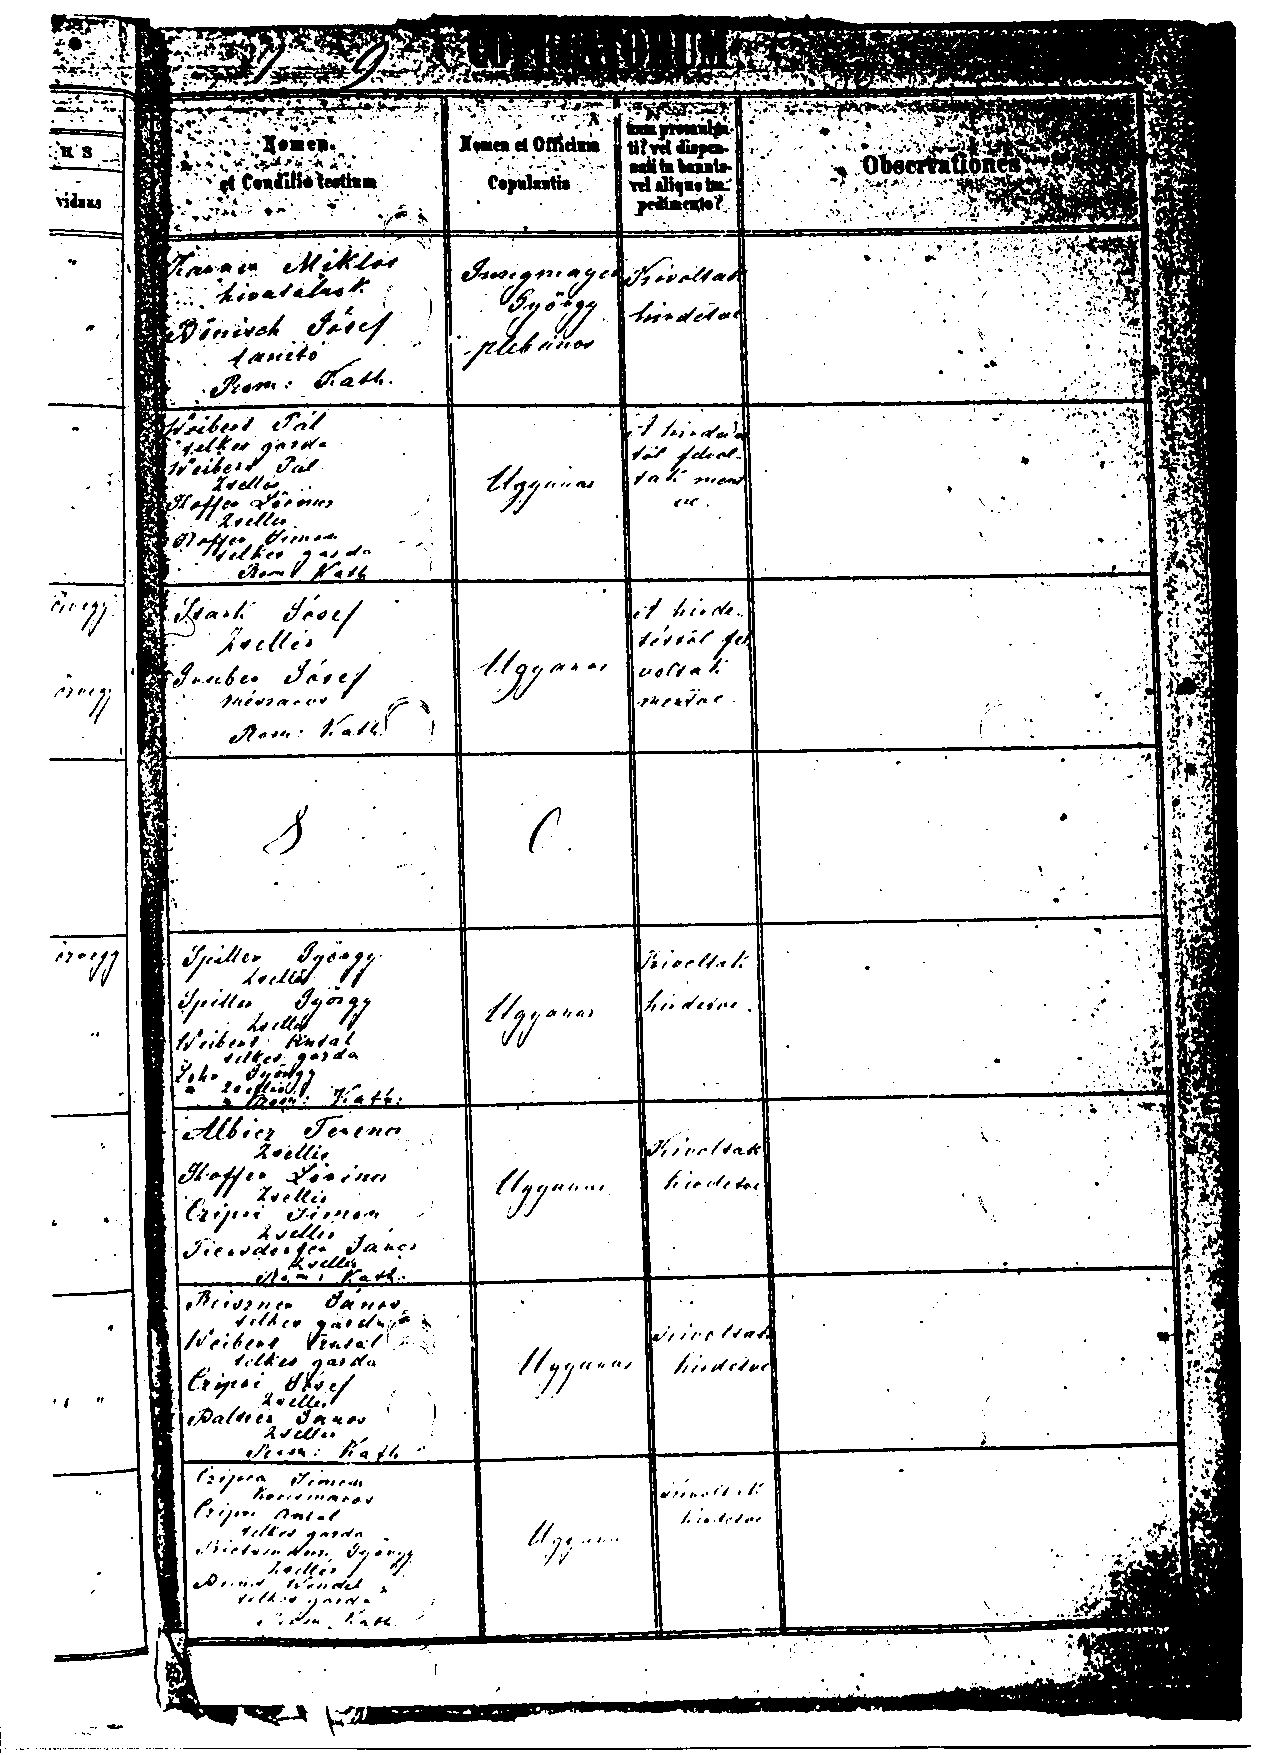 COPULATORUM
79
R S
viduus
Nomen.
et Conditio testium
Nomen et Officium
Copulantis
tum promulga
ti? vel dispen-
sati in bannis
vel aliquo im-
pedimento?
Observationes
Miklos
hivatalnok
Bönisch Jósef
tanitó
Rom: Kath.
György
plebános
Kivoltak
hirdetve
Weibert Pál
telkes gazda
Weibert Pál
Zsellér
Hoffer Lörincz
Zsellér
Hoffer Simon
telkes gazda
Rom Kath
Ugyanas
A hirdetés
tól felvol
tak ment
ve.
özvegy
özvegy
Stark Jósef
Zsellér
Gruber Jósef
mészáros
Rom: Kath.
Ugyanas
A hirde
téstöl fel
voltak
mentve
özvegy
Spiller György
Zsellér
Spiller György
Zsellér
Weibert Antal
telkes gazda
György
Zsellér
Rom: Kath:
Ugyanas
Kivoltak
hirdetve.
Albicz Ferencz
Zsellér
Hoffer Lörincz
Zsellér
Czipri Simon
Zsellér
János
Zsellér
Rom: Kath:
Ugyanas
Kivoltak
hirdetve
Reiszner János
telkes gazda
Weibert Antal
telkes gazda
Czipri Jósef
Zsellér
János
Zsellér
Rom: Kath
Ugyanas
Kivoltak
hirdetve
Czipri Simon
Korcsmáros
Czipri Antal
telkes gazda
György
Zsellér
Vendel
telkes gazda
Rom. Kath
Ugyanas
Kivoltak
hirdetve